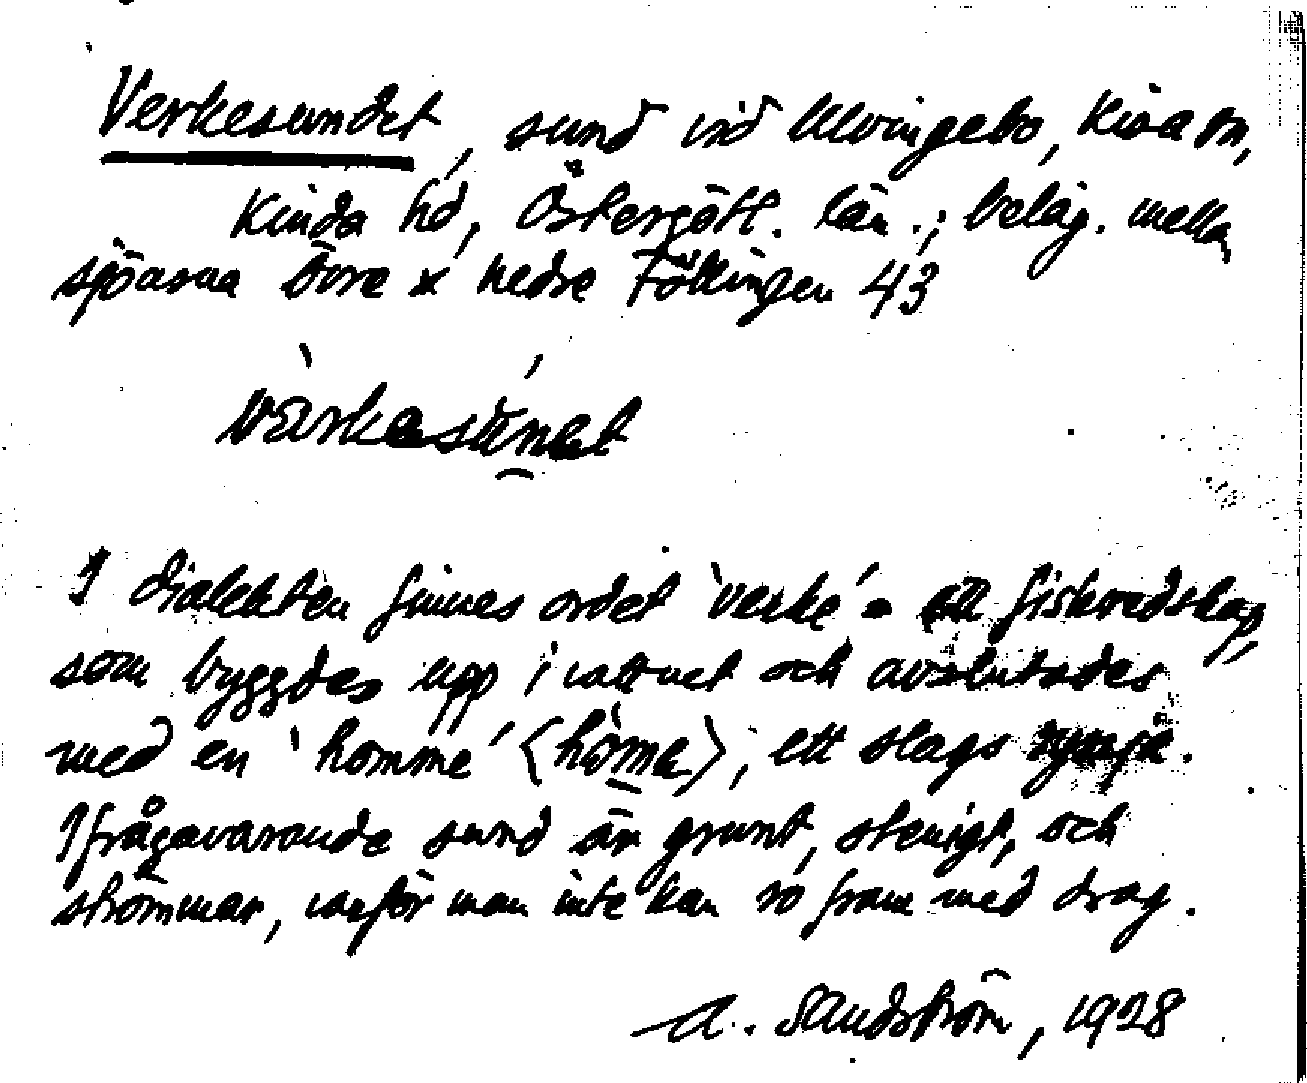 Verkesundet, sund vid Ulvingebo, Kisa sn,
Kinda hd, Östergötl. län.; beläg. mellan
sjöarna Övre x nedre Föllingen 43
värkesúnet
I dialekten finnes ordet 'verke' = ett fiskredskap,
som byggdes upp i vattnet och avslutades
med en 'homme' <hòmə>, ett slags ryssja.
Ifrågavarande sund är grunt, stenigt, och
strömmar, varför man inte kan ro fram med drag.
A. Sandström, 1928